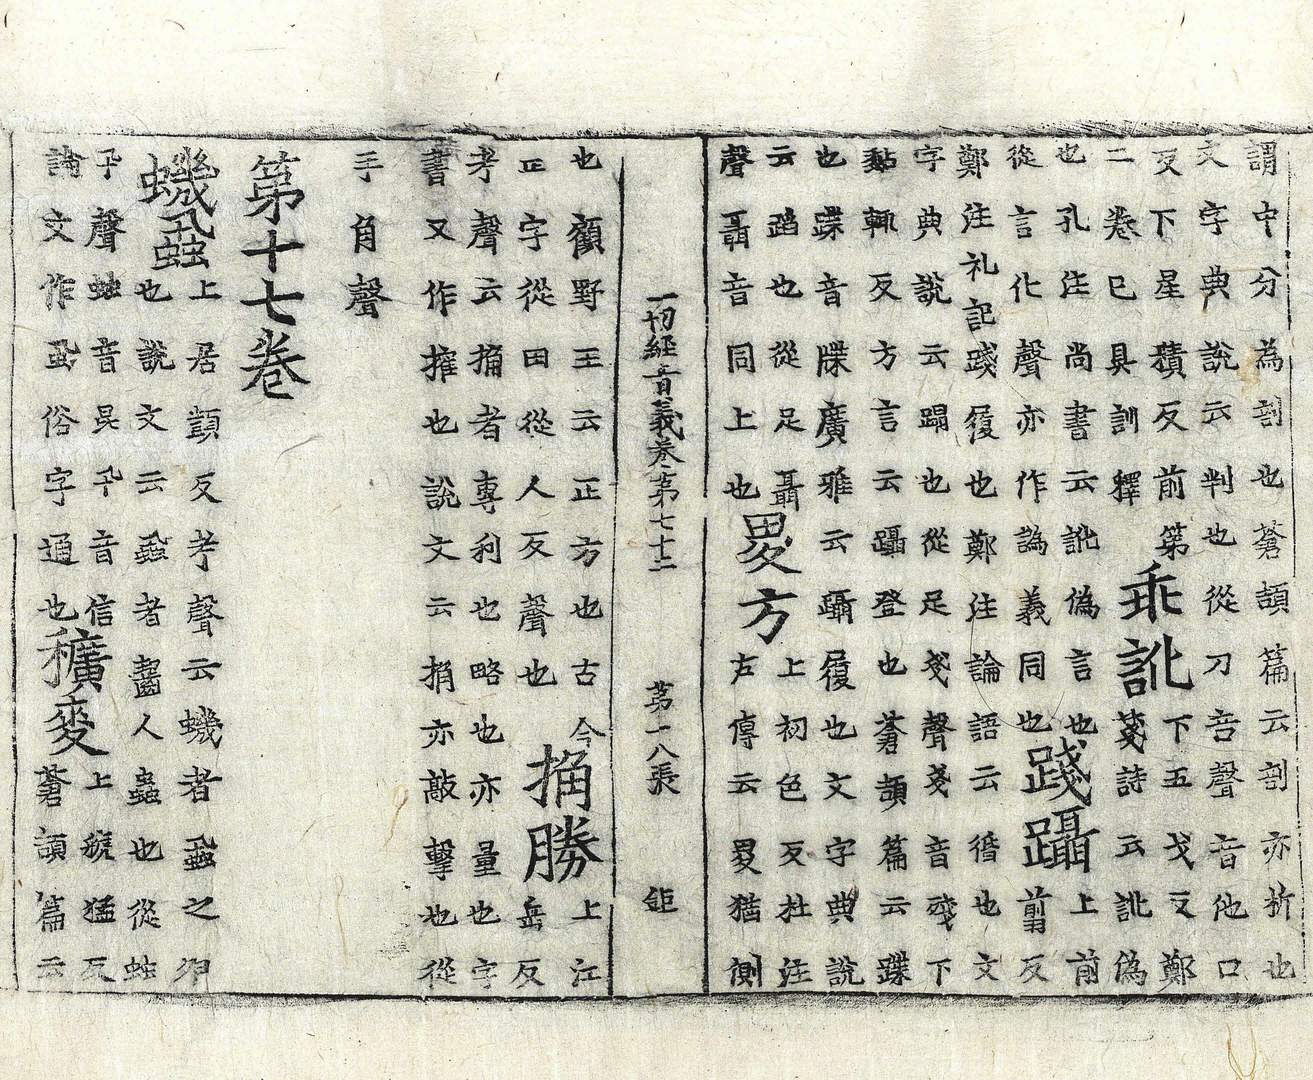 謂中分為剖也蒼頡篇云剖亦折也
文字典說云判也從刀咅聲咅音他口
反下星積反前第
二卷已具訓釋
乖訛
下五戈反鄭
箋詩云訛偽
也孔注尚書云訛偽言也
從言化聲亦作譌義同也
踐躡
上前
翦反
鄭注礼記踐履也鄭注論語云循也文
字典說云蹋也從足戔聲戔音殘下
黏輒反方言云躡登也蒼頡篇云蹀
也蹀音牒廣雅云躡履也文字典說
云蹈也從足聶
聲聶音同上也
畟方
上初色反杜注
左傳云畟猶側
一切經音義卷第七十二 第一八張 鉅
也顧野王云正方也古今
正字從田從人反聲也
捔勝
上江
岳反
考聲云捔者專利也略也亦量也字
書又作搉也說文云捎亦敲擊也從
手角聲
第十七卷
蟣蝨
上居顗反考聲云蟣者蝨之卵
也說文云蝨者齧人蟲也從䖵
卂聲䖵音昆卂音信
論文作虱俗字通也
穬麥
上虢猛反
蒼頡篇云